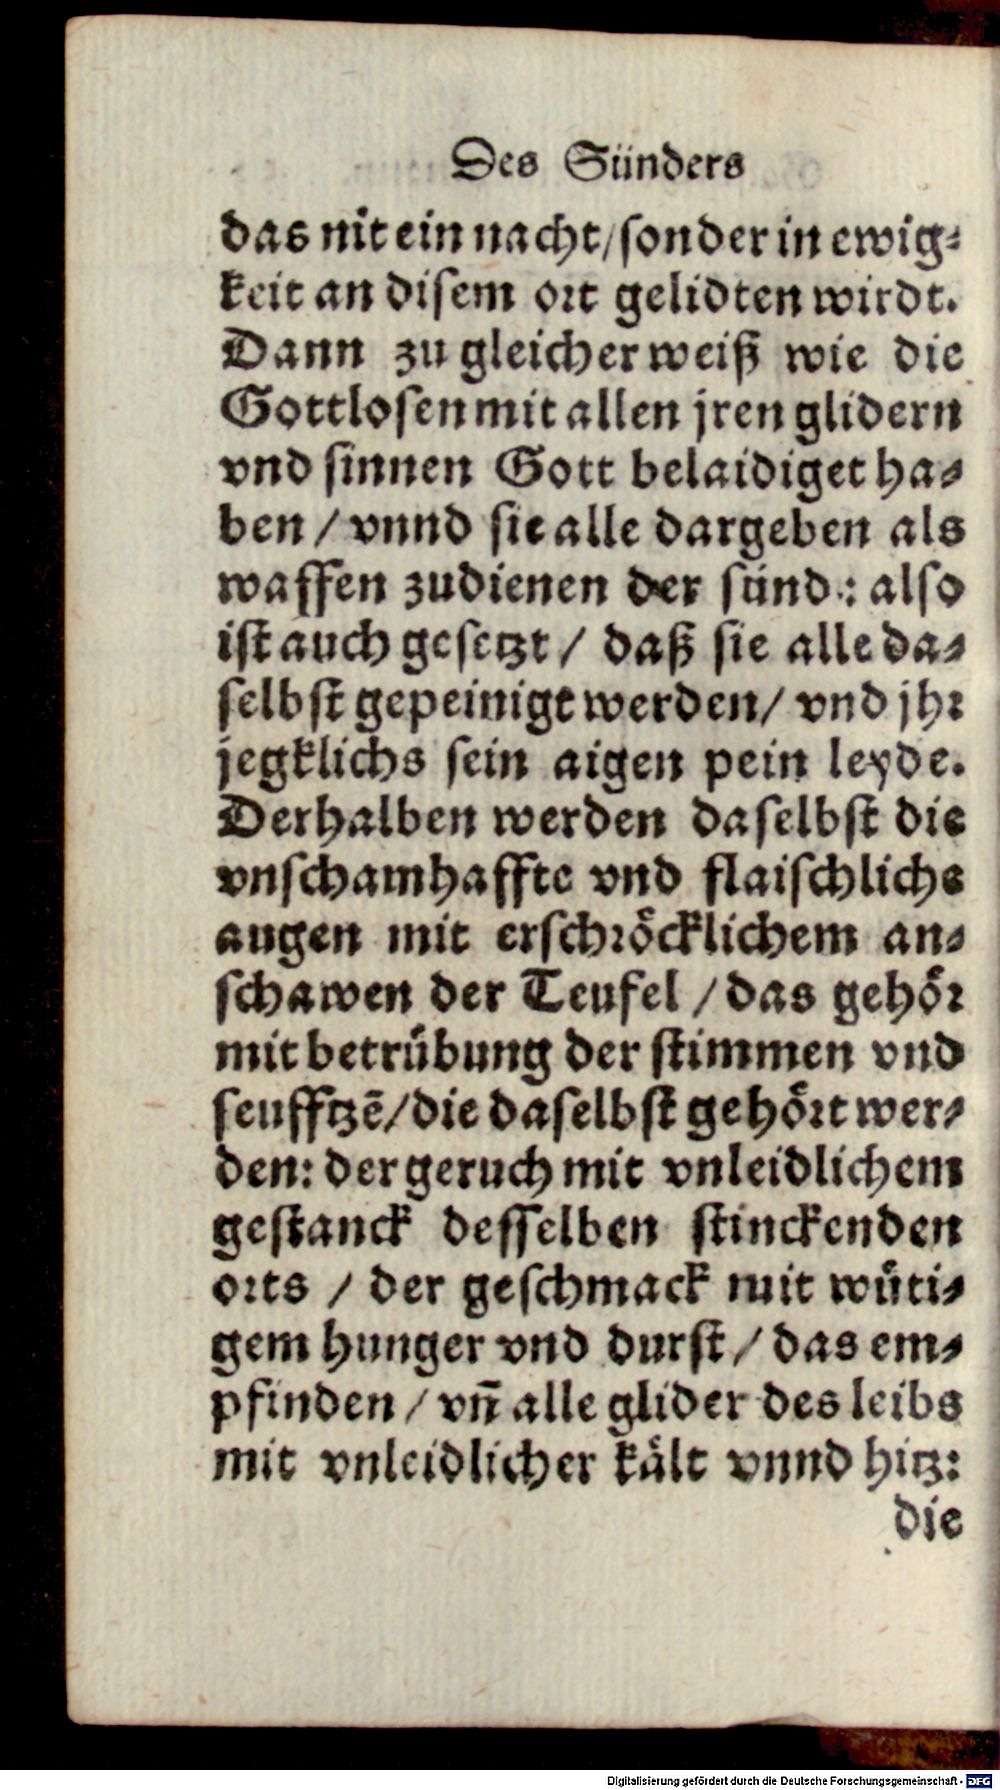 Des Sünders
das nit ein nacht/ sonder in ewig⸗
keit an disem ort gelidten wirdt.
Dann zu gleicher weiß wie die
Gottlosen mit allen jren glidern
vnd sinnen Gott belaidiget ha⸗
ben / vnnd sie alle dargeben als
waffen zudienen der sünd: also
ist auch gesetzt / daß sie alle da⸗
selbst gepeinigt werden/ vnd jhr
jegklichs sein aigen pein leyde.
Derhalben werden daselbst die
vnschamhaffte vnd flaischliche
augen mit erschröcklichem an⸗
schawen der Teufel / das gehör
mit betrübung der stimmen vnd
seufftzē/ die daselbst gehört wer⸗
den: der geruch mit vnleidlichem
gestanck desselben stinckenden
orts / der geschmack mit wüti⸗
gem hunger vnd durst / das em⸗
pfinden / vn̄ alle glider des leibs
mit vnleidlicher kält vnnd hitz:
die
Digitalisierung gefördert durch die Deutsche Forschungsgemeinschaft - DFG